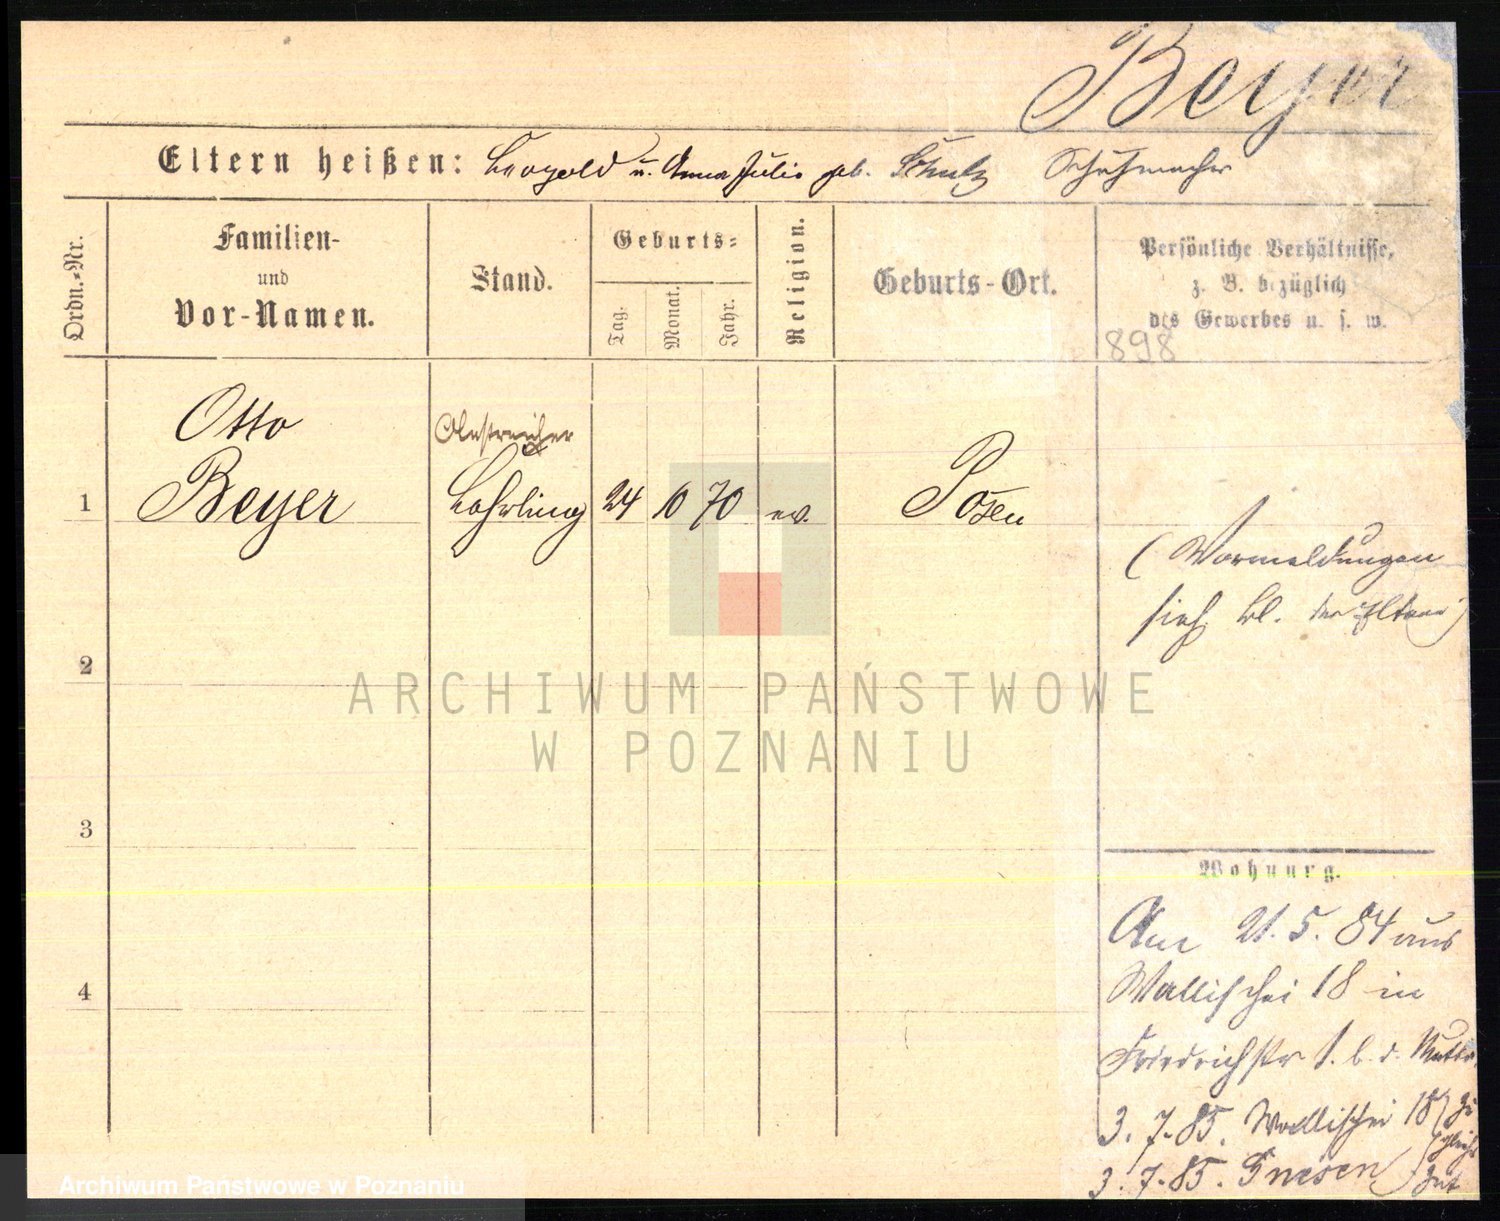 Beyer
Eltern heißen: Leopold u. Anna Julie geb. Schulz Schuhmacher
Ordn.-Nr.
Familien-
und
Vor-Namen.
Stand.
Geburts-
Tag.
Monat.
Jahr.
Religion.
Geburts-Ort.
Persönliche Verhältnisse,
z. B. bezüglich
des Gewerbes u. s. w.
898
Otto
Anstreicher
1 Beyer Lehrling 24 10 70 ev. Posen
(Vormeldungen
sieh bl. der Eltern)
2
ARCHIWUM PAŃSTWOWE
W POZNANIU
3
Wohnung.
Am 21. 5. 84 aus
4
Wallischei 18 in
Friedrichstr 1. b. d. Mutter
3. 7. 85. Wallischei 18
3. 7. 85. Gnesen
Archiwum Państwowe w Poznaniu